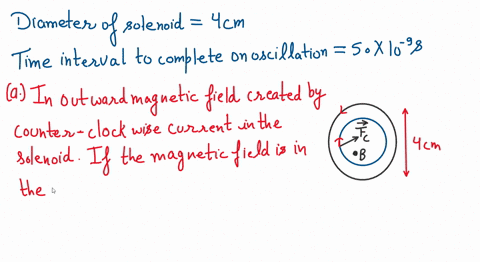 Diameter of solenoid = 4cm
Time interval to complete on oscillation = 5.0 X 10⁻⁹s
(a.) In outward magnetic field created by
counter-clock wise current in the
solenoid. If the magnetic field is in
the
F⃗c
B
4cm